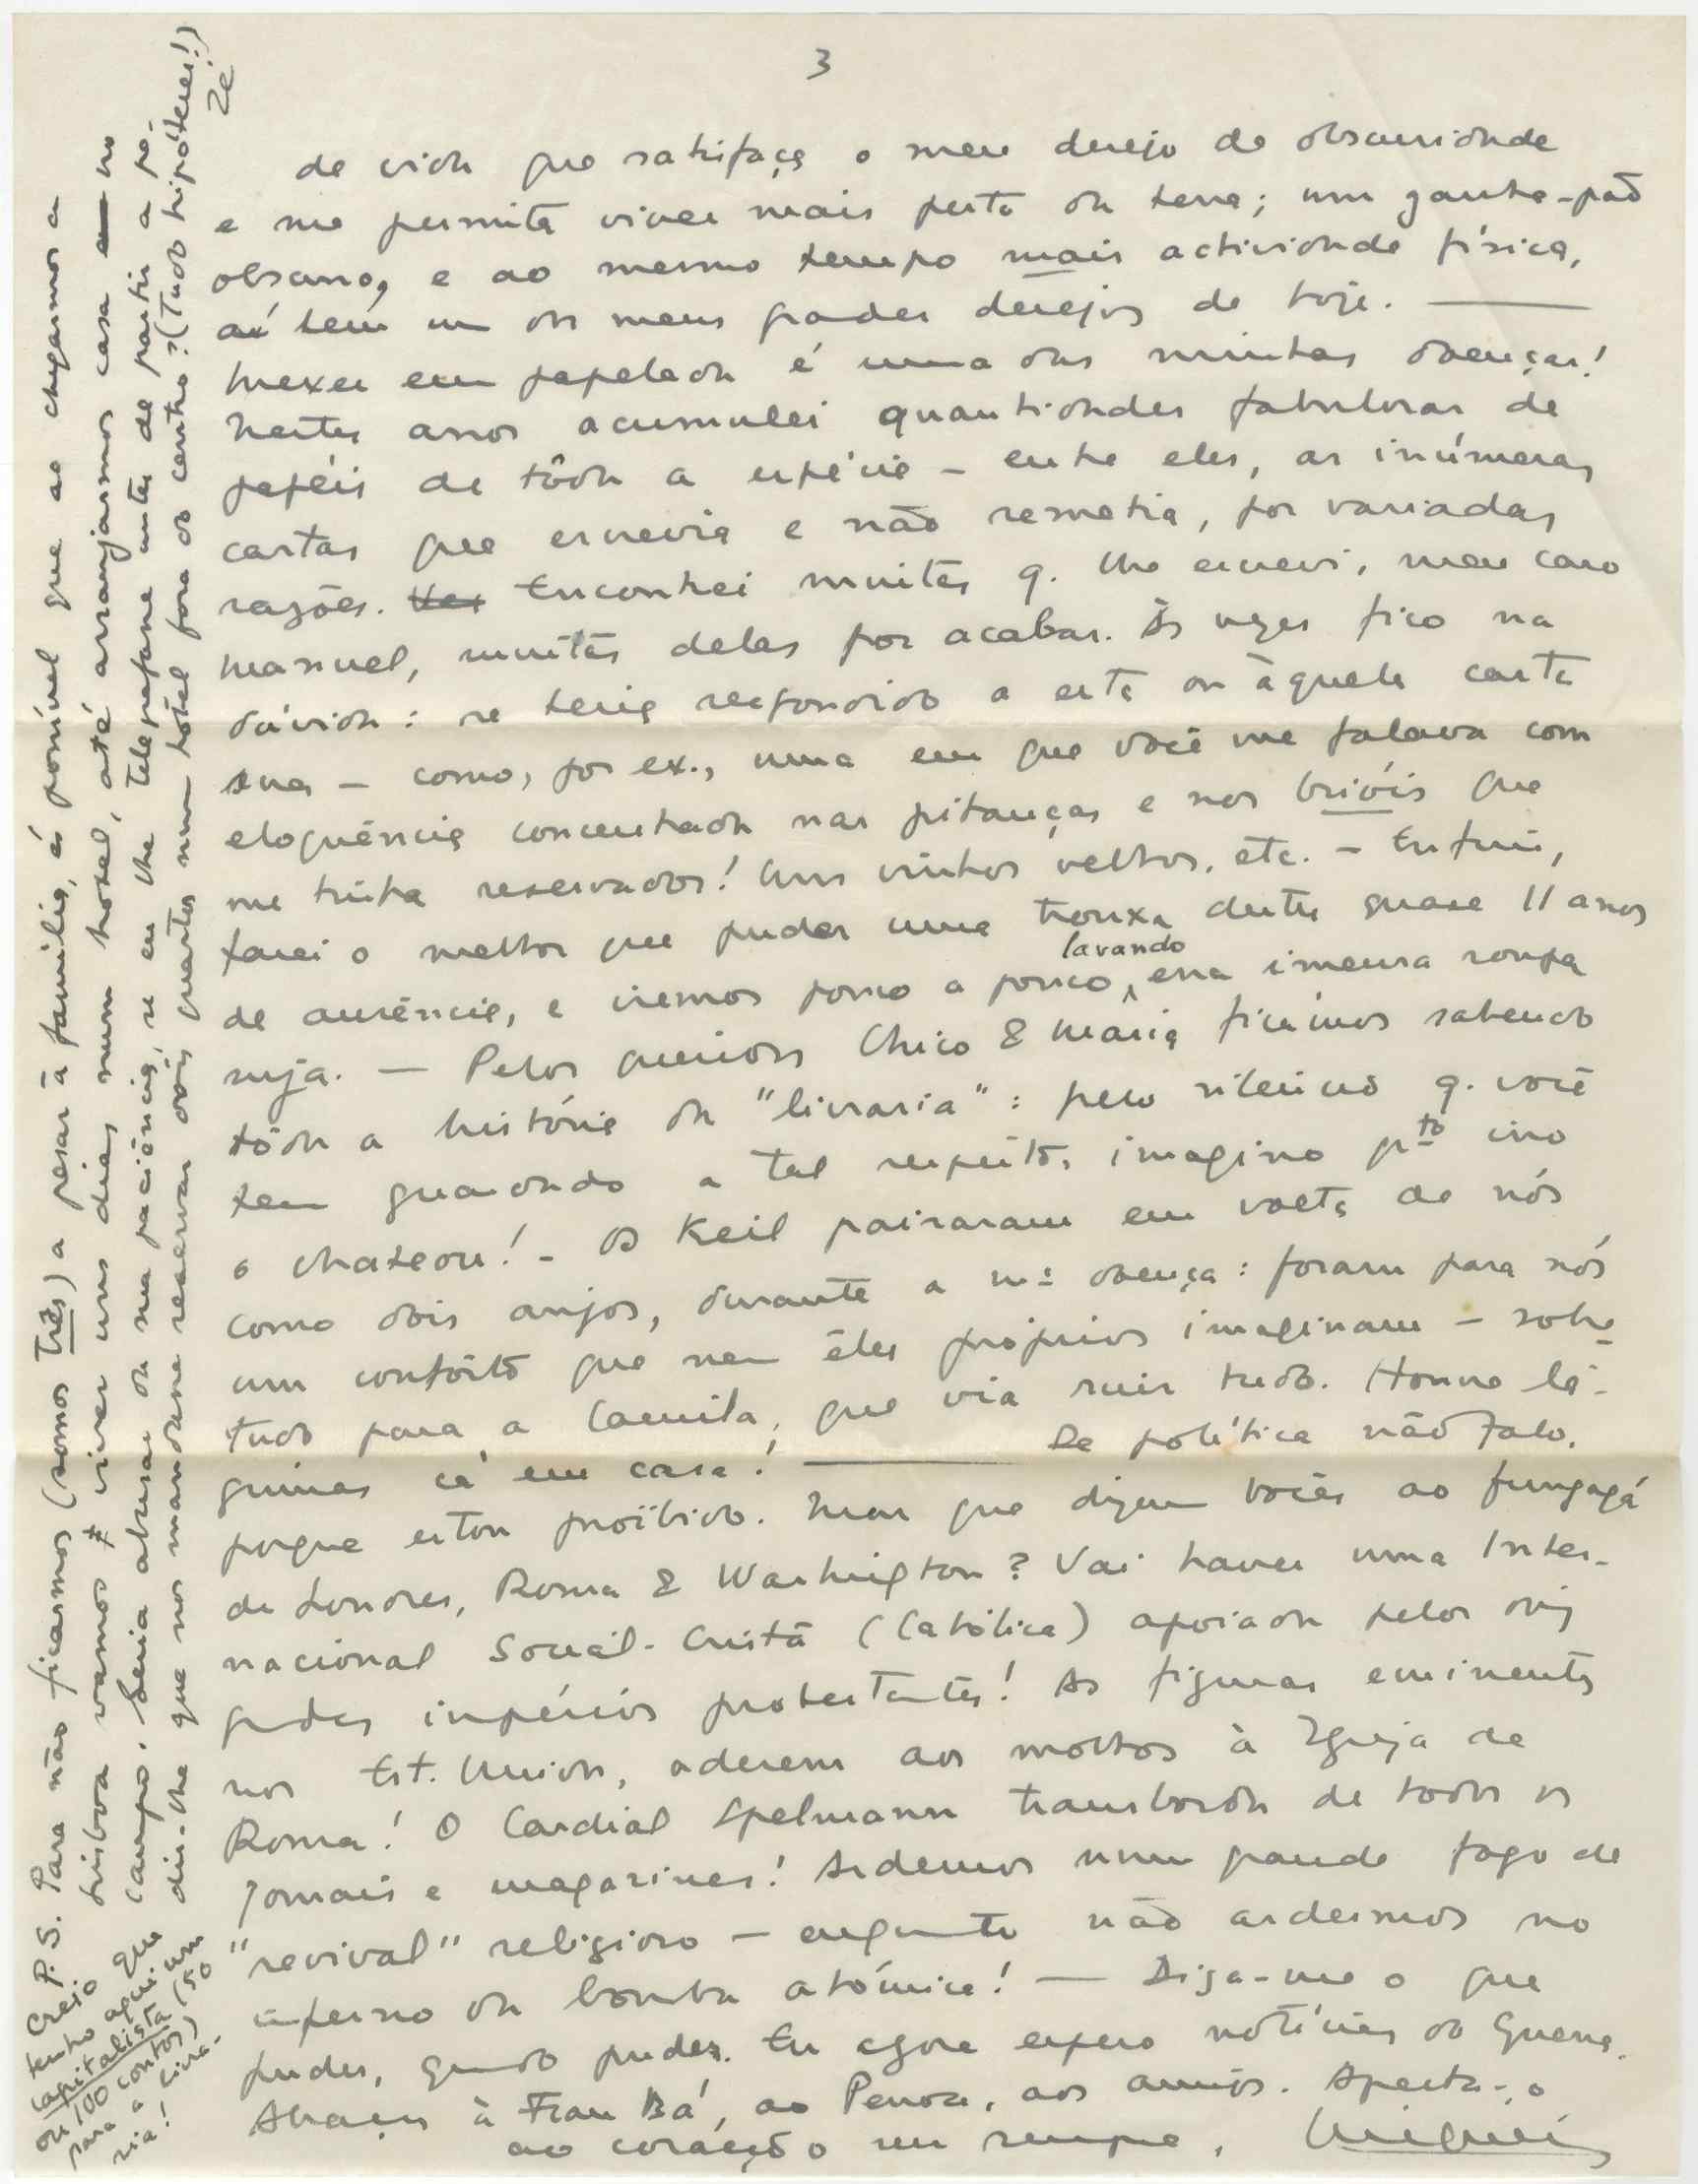 3
de vida que satisfaça o meu desejo de obscuridade
e me permita viver mais perto da terra; um ganha-pão
obscuro, e ao mesmo tempo mais actividade física,
aí tem um dos meus grandes desejos de hoje. ———
Mexer em papelada é uma das minhas doenças!
Nestes anos acumulei quantidades fabulosas de
papéis de tôda a espécie – entre eles, as inúmeras
cartas que escrevia e não remetia, por variadas
razões. Encontrei muitas q. lhe escrevi, meu caro
Manuel, muitas delas por acabar. Às vezes fico na
dúvida: se teria respondido a esta ou àquela carta
sua – como, por ex., uma em que você me falava com
eloquência concentrada nas pitanças e nos brióis que
me tinha reservados! Uns vinhos velhos, etc. – Enfim,
farei o melhor que puder uma trouxa destes quase 11 anos
de ausência, e iremos pouco a pouco lavando essa imensa roupa
suja. — Pelos queridos Chico & Maria ficámos sabendo
tôda a história da "livraria": pelo silêncio q. você
tem guardado a tal respeito, imagino qto isso
o chateou! – Os Keil pairaram em volta de nós
como dois anjos, durante a mª doença: foram para nós
um confôrto que nem êles próprios imaginam – sobre-
tudo para a Camila, que via ruir tudo. Houve lá-
grimas cá em casa! ——— De política não falo,
porque estou proïbido. Mas que dizem vocês ao fungagá
de Londres, Roma & Washington? Vai haver uma Inter-
nacional Social-Cristã (Católica) apoiada pelos dois
grandes impérios protestantes! As figuras eminentes
nos Est. Unidos, aderem aos molhos à Igreja de
Roma! O Cardial Spelmann transborda de todos os
jornais e magazines! Ardemos num grande fogo de
"revival" religioso – enquanto não ardermos no
inferno da bomba atómica! — Diga-me o que
puder, quando puder. Eu agora espero notícias do Guerra.
Abraços à Frau Bá, ao Penoz, aos amigos. Aperta-o
ao coração o seu sempre, Miguéis
P.S. Para não ficarmos (somos três) a pesar à família, é possível que ao chegarmos a
Lisboa vamos viver uns dias num hotel, até arranjarmos casa no
campo. Seria abusar da sua paciência, se eu lhe telegrafasse antes de partir a pe-
dir-lhe que nos mandasse reservar dois quartos num hotel fora do centro? (Tudo hipóteses!)
Zé
Creio que
tenho aqui um
capitalista (50
ou 100 contos)
para a livra-
ria!